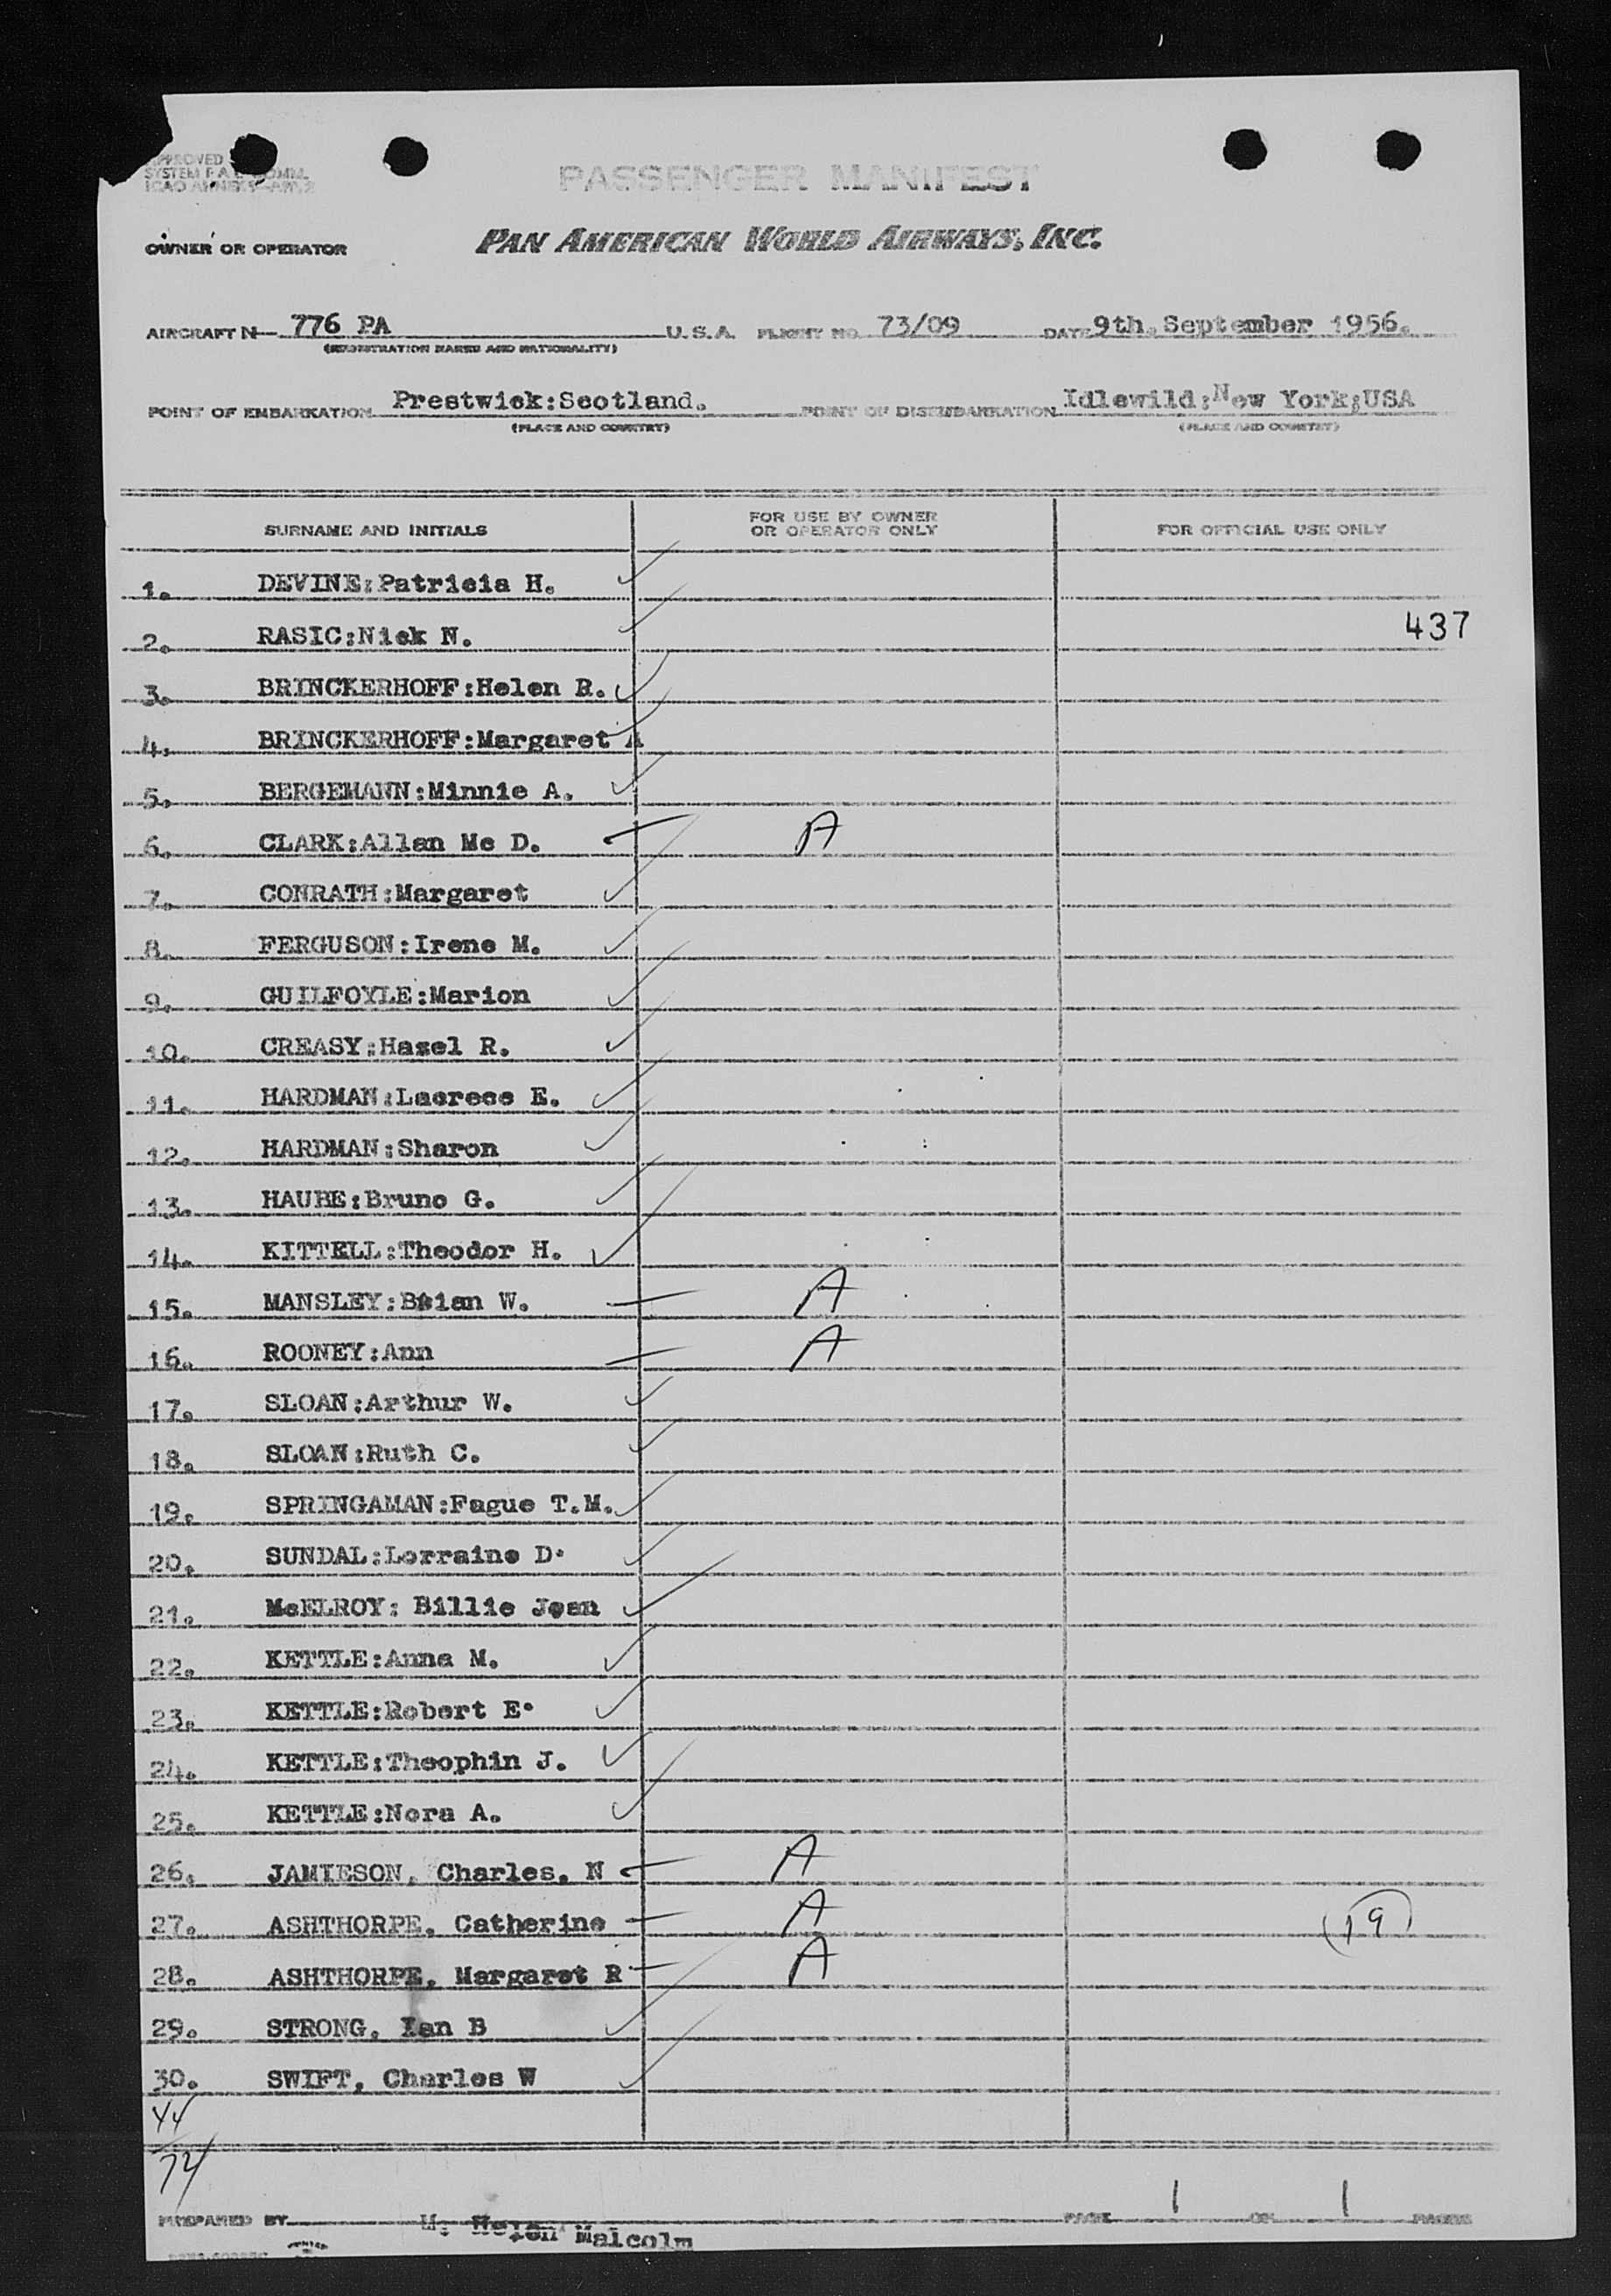 APPROVED
SYSTEM P.A.A. COMM.
PASSENGER MANIFEST
OWNER OR OPERATOR PAN AMERICAN WORLD AIRWAYS, INC.
AIRCRAFT N- 776 PA U.S.A. FLIGHT NO. 73/09 DATE 9th. September 1956.
(REGISTRATION MARKS AND NATIONALITY)
POINT OF EMBARKATION Prestwick:Scotland. POINT OF DISEMBARKATION Idlewild;New York;USA
(PLACE AND COUNTRY) (PLACE AND COUNTRY)
SURNAME AND INITIALS FOR USE BY OWNER OR OPERATOR ONLY FOR OFFICIAL USE ONLY
1. DEVINE:Patricia H.
2. RASIC:Nick N. 437
3. BRINCKERHOFF:Helen R.
4. BRINCKERHOFF:Margaret A
5. BERGEMANN:Minnie A.
6. CLARK:Allan Mc D. A
7. CONRATH:Margaret
8. FERGUSON:Irene M.
9. GUILFOYLE:Marion
10. CREASY:Hazel R.
11. HARDMAN:Lacrece E.
12. HARDMAN:Sharon
13. HAUBE:Bruno G.
14. KITTELL:Theodor H.
15. MANSLEY:Brian W. A
16. ROONEY:Ann A
17. SLOAN:Arthur W.
18. SLOAN:Ruth C.
19. SPRINGAMAN:Fague T.M.
20. SUNDAL:Lorraine D.
21. McELROY: Billie Jean
22. KETTLE:Anna M.
23. KETTLE:Robert E.
24. KETTLE:Theophin J.
25. KETTLE:Nora A.
26. JAMIESON, Charles, N A
27. ASHTHORPE, Catherine A 19
28. ASHTHORPE, Margaret R A
29. STRONG, Ian B
30. SWIFT, Charles W
44
74
PREPARED BY M. Helen Malcolm PAGE 1 OF 1 PAGES